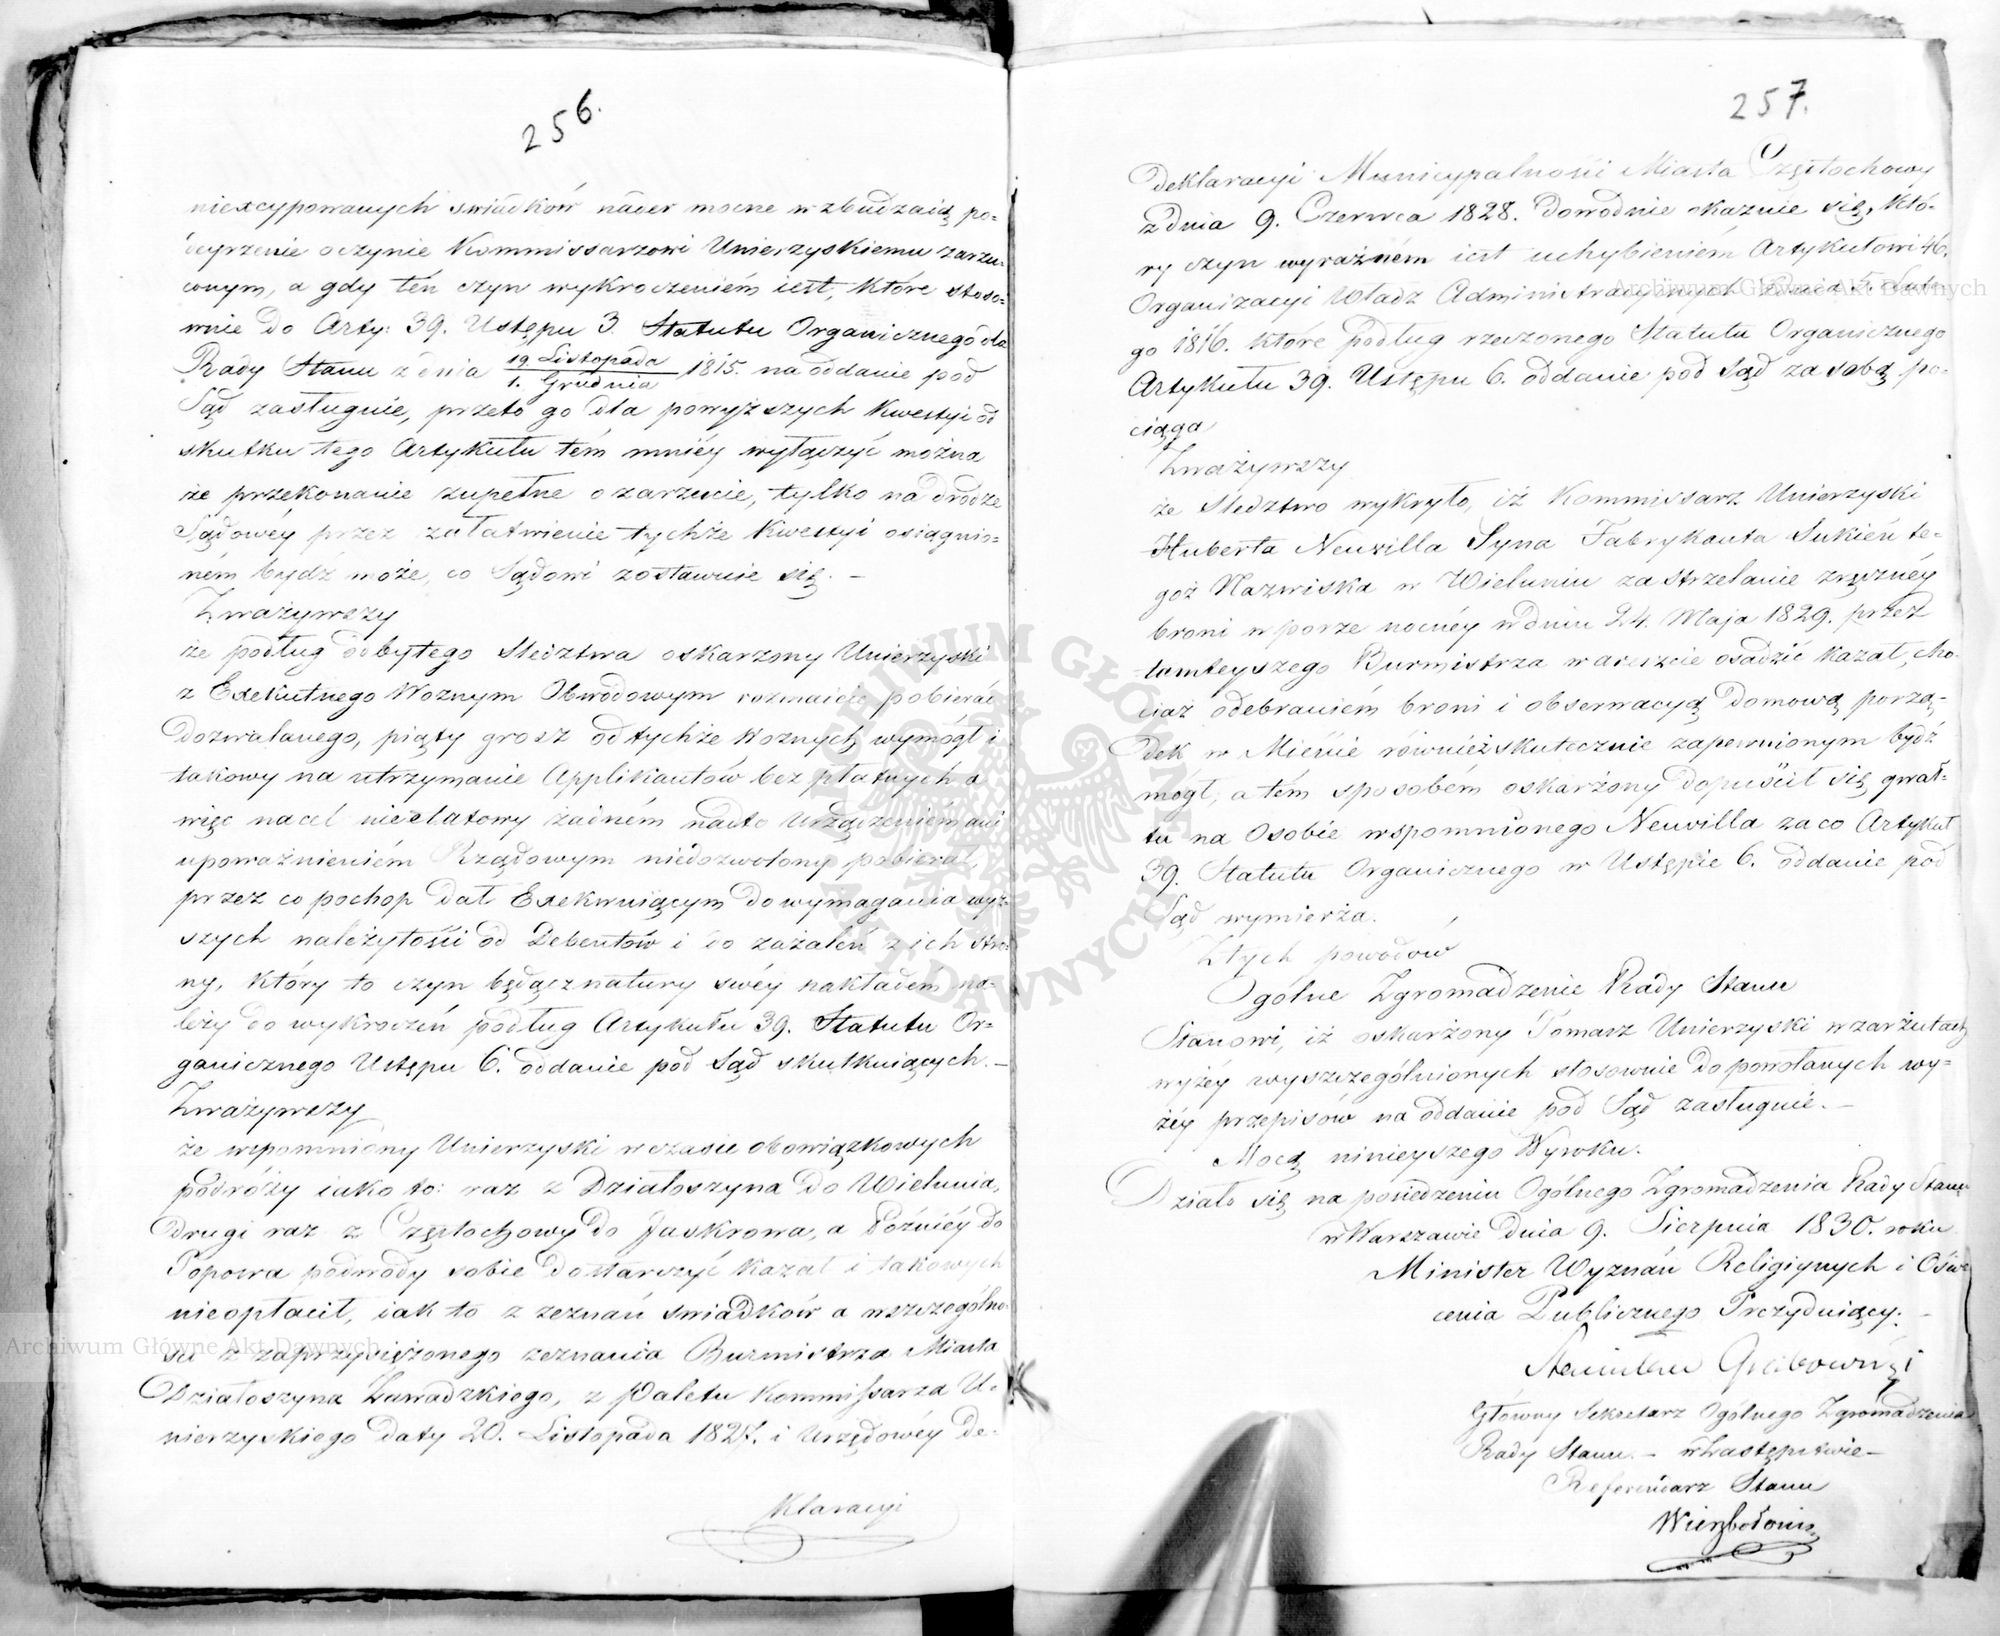 256.
niexcypowanych swiadków nader mocne wzbudzaią po-
deyrzenie oczynie Kommissarzowi Unierzyskiemu zarzu-
conym, a gdy tén czyn wykroczeniém iest, które stoso-
wnie do Arty: 39. Ustępu 3. Statutu Organicznego dla
Rady Stanu z dnia 19 Listopada / 1. Grudnia 1815. na oddanie pod
Sąd zasługuie, przeto go dla powyższych Kwestyi od
skutku tego Artykułu tém mniéy wyłączyć można
że przekonanie zupełne o zarzucie, tylko na drodze
Sądowéy przez załatwienie tychże Kwestyi osiągnio-
ném bydź może, co Sądowi zostawuie się. –
Zważywszy
że podług odbytego Sledztwa oskarzony Unierzyski
z Exekutnego Woznym Obwodowym rozmaicie pobierać
dozwalanego, piąty grosz od tychże Woznych wymógł i
takowy na utrzymanie Applikantów bezpłatnych a
więc na cel nieetatowy żadném nadto Urządzeniém ani
upoważnieniém Rządowym niedozwolony pobierał,
przez co pochop dał Exekwuiącym do wymagania wyż-
szych należytości od Debentów i do zażaleń z ich stro-
ny, który to czyn będąc z natury swéy nakładém na-
leży do wykroczeń podług Artykułu 39. Statutu Or-
ganicznego Ustępu 6. oddanie pod Sąd skutkuiących. –
Zważywszy
że wspomniony Unierzyski w czasie obowiązkowych
podróży iako to: raz z Działoszyna do Wielunia,
drugi raz z Częstochowy do Jaskrowa, a Pózniéy do
Popowa podwody sobie dostarczyć kazał i takowych
nieopłacił, iak to z zeznań swiadków a wszczególno-
ści z zaprzysiężonego zeznania Burmistrza Miasta
Działoszyna Zawadzkiego, z Paletu Kommissarza U-
nierzyskiego daty 20. Listopada 1827. i Urzędowéy De-
klaracyi
257.
deklaracyi Municypalności Miasta Częstochowy
z dnia 9. Czerwca 1828. dowodnie okazuie się, któ-
ry czyn wyraźném iest uchybieniém Artykułowi 46.
Organizacyi Władz Administracyinych
go 1816. które podług rzeczonego Statutu Organicznego
Artykułu 39. Ustępu 6. oddanie pod Sąd za sobą po-
ciąga
Zważywszy
że Sledztwo wykryło, iż Kommissarz Unierzyski
Huberta Neuvilla Syna Fabrykanta Sukien te-
goż Nazwiska w Wieluniu za strzelanie zręcznéy
broni w porze nocnéy w dniu 24. Maja 1829. przez
tamteyszego Burmistrza w areszcie osadzić kazał, cho-
ciaż odebraniém broni i obserwacyą domową porzą-
dek w Mieście również skutecznie zapewnionym bydź
mógł; a tém sposobém oskarżony dopuścił się gwał-
tu na Osobie wspomnionego Neuvilla za co Artykuł
39. Statutu Organicznego w Ustępie 6. oddanie pod
Sąd wymierza.
Z tych powodów
Ogólne Zgromadzenie Rady Stanu
Stanowi, iż oskarżony Tomasz Unierzyski w zarzutach
wyżéy wyszczególnionych stosownie do powołanych wy-
żéy przepisów na oddanie pod Sąd zasługuie. –
Mocą ninieyszego Wyroku.
Działo się na posiedzeniu Ogólnego Zgromadzenia Rady Stanu
w Warszawie dnia 9. Sierpnia 1830. roku
Minister Wyznań Religiynych i Oświe-
cenia Publicznego Prezyduiący. –
Stanisław Grabowski
Główny Sekretarz Ogólnego Zgromadzenia
Rady Stanu. – w Zastępstwie –
Referendarz Stanu
Archiwum Główne Akt Dawnych
Archiwum Główne Akt Dawnych
ARCHIWUM GŁÓWNE AKT DAWNYCH